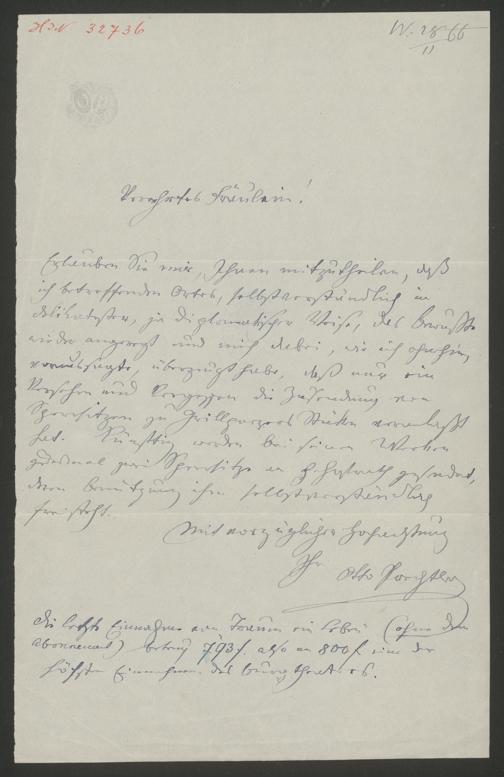 H.I.N. 32736
W. 28/11 66
Verehrtes Fräulein!
Erlauben Sie mir, Ihnen mitzutheilen, daß
ich betreffenden Ortes, selbstverständlich in
delikatester, ja diplomatischer Weise, das Bewußte
wieder angeregt und mich dabei, wie ich ohnehin
voraussagte, überzeugt habe, daß nur ein
Versehen und Vergessen die Zusendung von
Sperrsitzen zu Grillparzers Stücken veranlaßt
hat. Künftig werden bei seinen Werken
jedesmal zwei Sperrsitze an H. Hofrath gesendet,
deren Benützung ihm selbstverständlich
freisteht.
Mit vorzüglicher Hochachtung
Ihr
Otto Prechtler
Die letzte Einnahme von Traum ein Leben (ohne dem
Abonnement) betrug 793 f. also an 800 f eine der
höchsten Einnahmen des Burgtheaters.